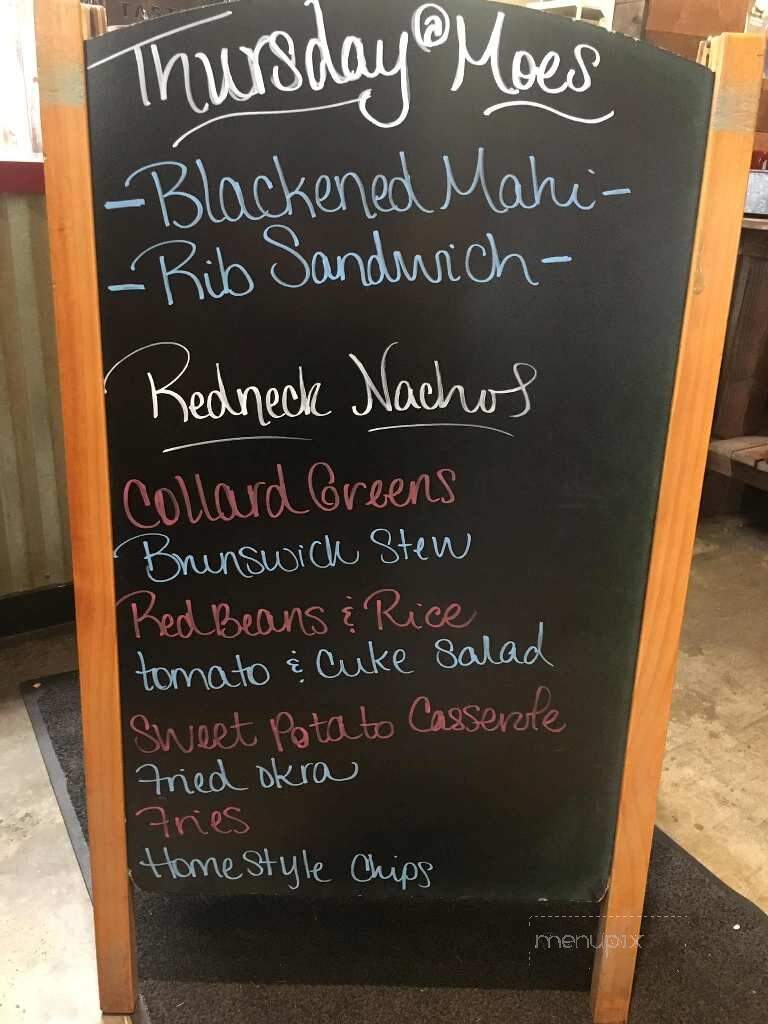 Thursday @ Moes
- Blackened Mahi -
- Rib Sandwich -
Redneck Nachos
Collard Greens
Brunswick Stew
Red Beans & Rice
tomato & Cuke Salad
Sweet Potato Casserole
Fried Okra
Fries
Homestyle Chips
menupix